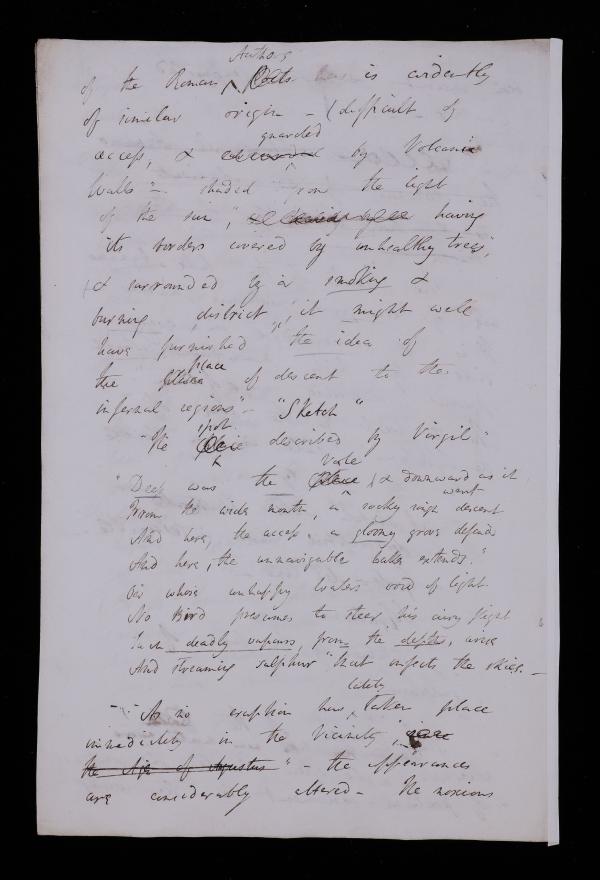 Authors
of the Roman Poets is evidently
of similar origin – (difficult of
guarded
access, & by Volcanic
Walls – shaded from the light
of the sun", having
its borders covered by unhealthy trees",
& surrounded by a smoking &
burning district", it might well
have furnished "the idea of
place
the of descent to the
infernal regions" – "Sketch"
spot
"The described by Virgil"
Vale
"Deep was the Place, & downward as it
went
From the wide mouth, a rocky rough descent
And here, the access, a gloomy grove defends
And here, the unnavigable lake extends."
O'er whose unhappy waters void of light
No Bird presumes to steer his airy flight
Such deadly vapours from the depths, arise
And streaming sulphur "that infects the skies. –
lately
– "As no eruption has taken place
immediately in the Vicinity" since
the Age of Augustus" – the appearances
are considerably altered – The noxious